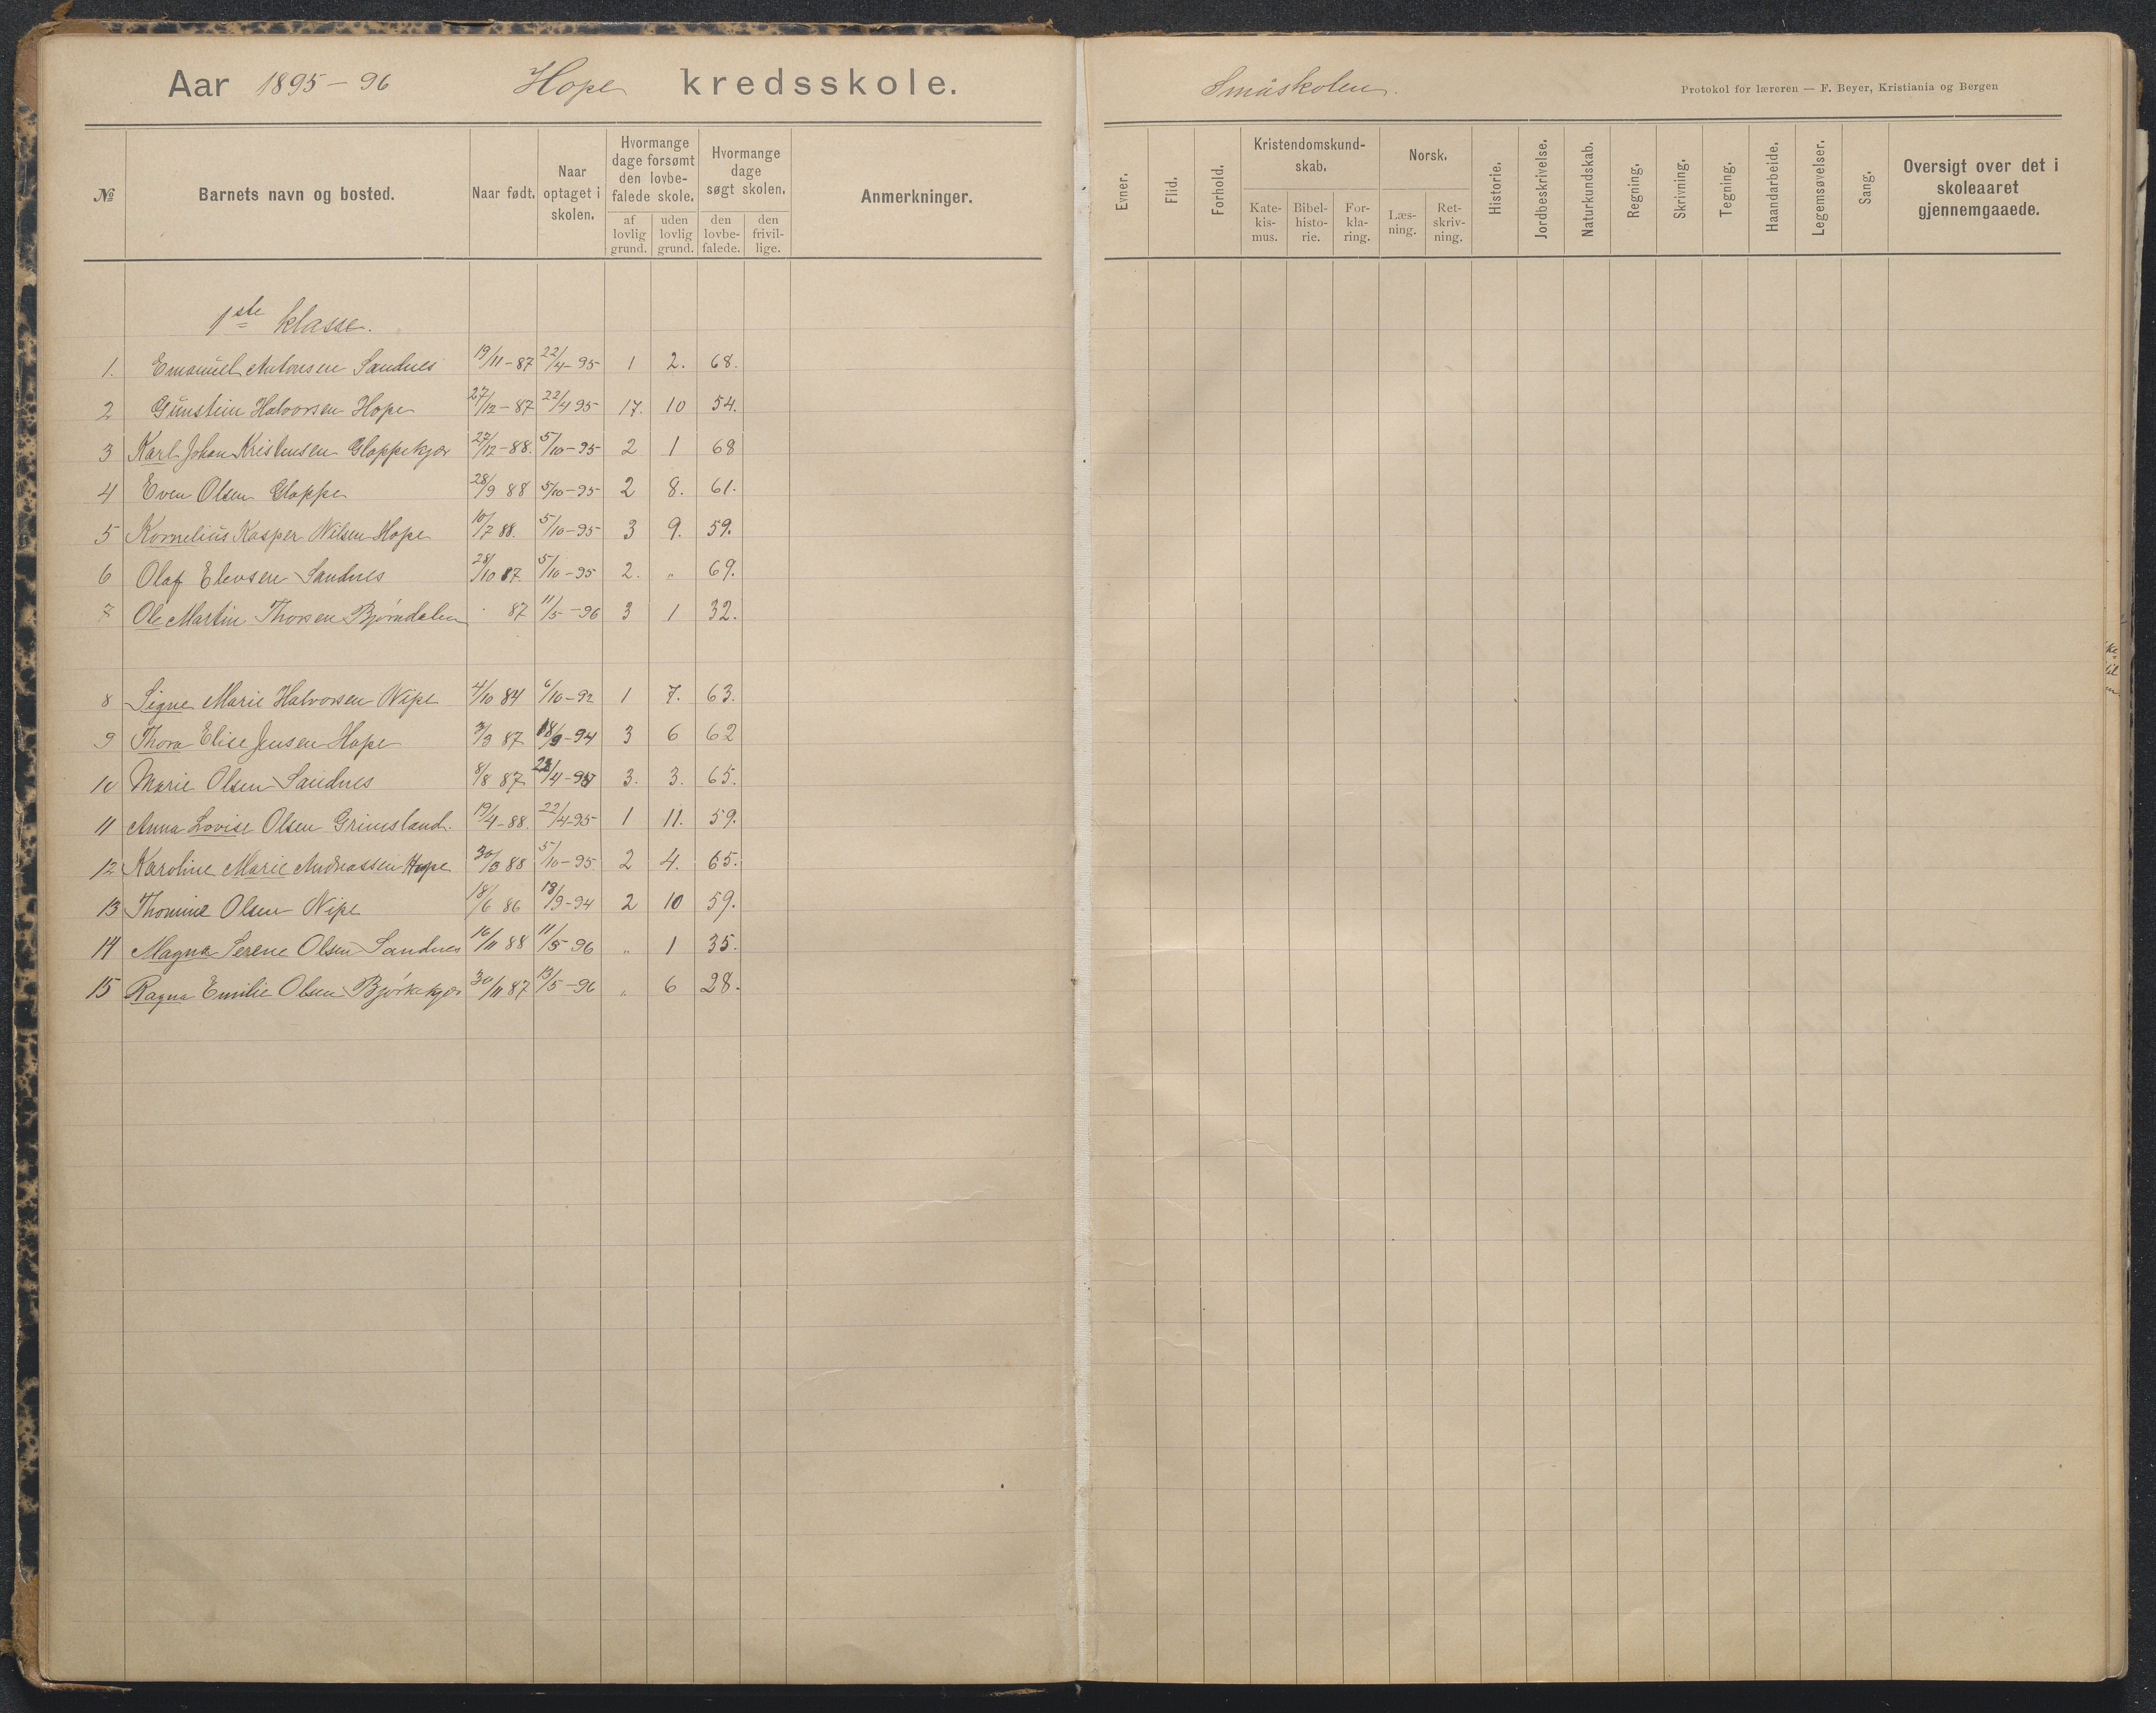 Aar 1895-96 Hope kredsskole.
№ Barnets navn og bosted. Naar født. Naar optaget i skolen. Hvormange dage forsømt den lovbefalede skole. af lovlig grund. uden lovlig grund. Hvormange dage søgt skolen. den lovbefalede. den frivillige. Anmerkninger.
1ste klasse.
1. Emanuel Antonsen Sandnes 19/11-87 22/4-95 1 2. 68.
2 Gunstein Halvorsen Hope 27/12-87 22/4 95 17. 10 54.
3 Karl Johan Kristensen Gloppekjær 27/12-88. 5/10-95 2 1 68
4 Even Olsen Gloppe 28/9 88 5/10-95 2 8. 61.
5 Kornelius Kasper Nilsen Hope 10/7 88. 5/10-95 3 9. 59.
6 Olaf Elevsen Sandnes 28/10 87. 5/10-95 2. " 69.
7 Ole Martin Thorsen Bjørndalen 87 11/5-96 3 1 32.
8 Signe Marie Halvorsen Nipe 4/10 84 6/10-92 1 7. 63.
9 Thora Elise Jensen Hope 3/3 87 18/9-94 3 6 62
10 Marie Olsen Sandnes 8/8 87 3. 3. 65.
11 Anna Lovise Olsen Grimsland. 19/4-88. 22/4-95 1 11. 59.
12 Karoline Marie Andreassen Hope 30/3 88 5/10-95 2 4. 65.
13 Thomine Olsen Nipe 18/6 86 18/9-94 2 10 59.
14 Magna Serene Olsen Sandnes 16/11 88 11/5-96 " 1 35.
15 Ragna Emilie Olsen Bjørkekjær 30/11 87 13/5-96 " 6 28.
Småskolen.
Protokol for læreren — F. Beyer, Kristiania og Bergen
Evner. Flid. Forhold. Kristendomskundskab. Katekismus. Bibelhistorie. Forklaring. Norsk. Læsning. Retskrivning. Historie. Jordbeskrivelse. Naturkundskab. Regning. Skrivning. Tegning. Haandarbeide. Legemsøvelser. Sang. Oversigt over det i skoleaaret gjennemgaaede.